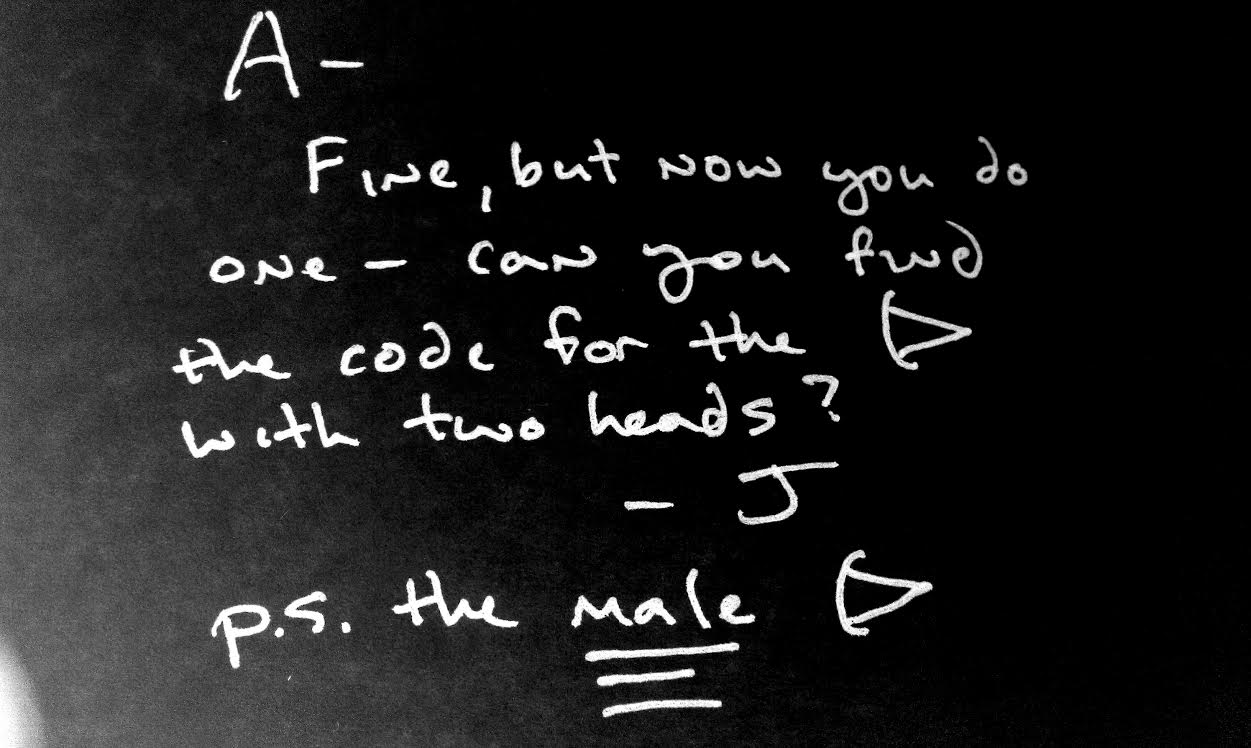 A-
Fine, but now you do
one - can you find
the code for the
with two heads?
- J
p.s. the male